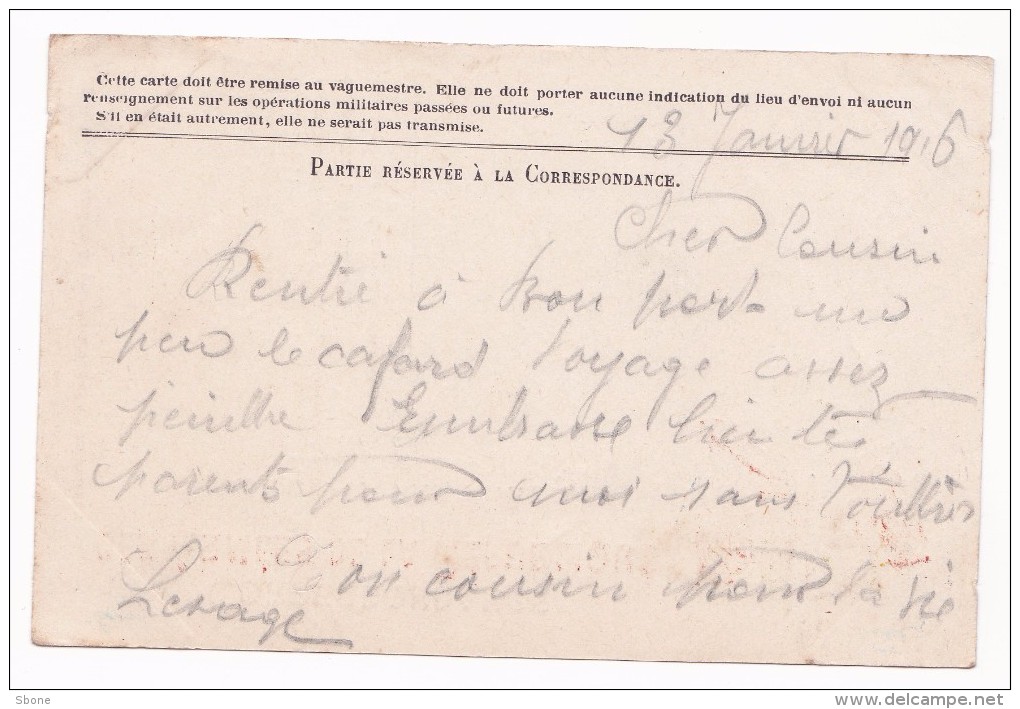 Cette carte doit être remise au vaguemestre. Elle ne doit porter aucune indication du lieu d'envoi ni aucun
renseignement sur les opérations militaires passées ou futures.
S'il en était autrement, elle ne serait pas transmise.
13 Janvier 1916
PARTIE RÉSERVÉE À LA CORRESPONDANCE.
Cher Cousin
Rentré à bon port un
peu le cafard Voyage assez
penible Embrasse bien tes
parents pour moi sans t'oublier
Ton cousin pour la vie
Lesage
Sbone
www.delcampe.net